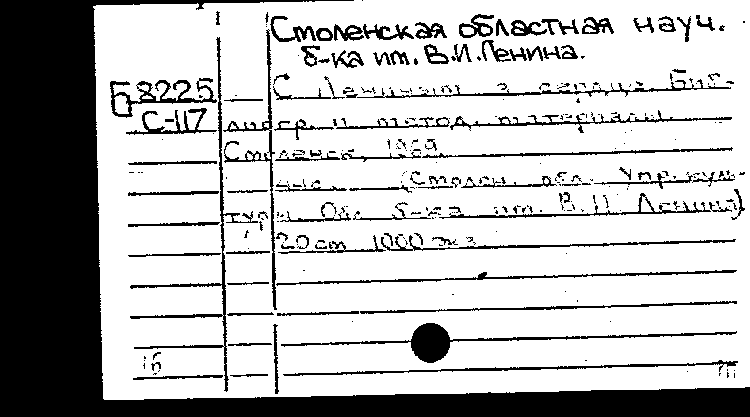 Смоленская областная науч.
б-ка им. В.И.Ленина.
Б8225
С-117
С Лениным в сердце. Биб-
лиогр. и метод. материалы.
Смоленск, 1969.
(Смолен. обл. Упр. куль-
туры. Обл. б-ка им. В. И. Ленина)
20 см 1000 экз.
1б